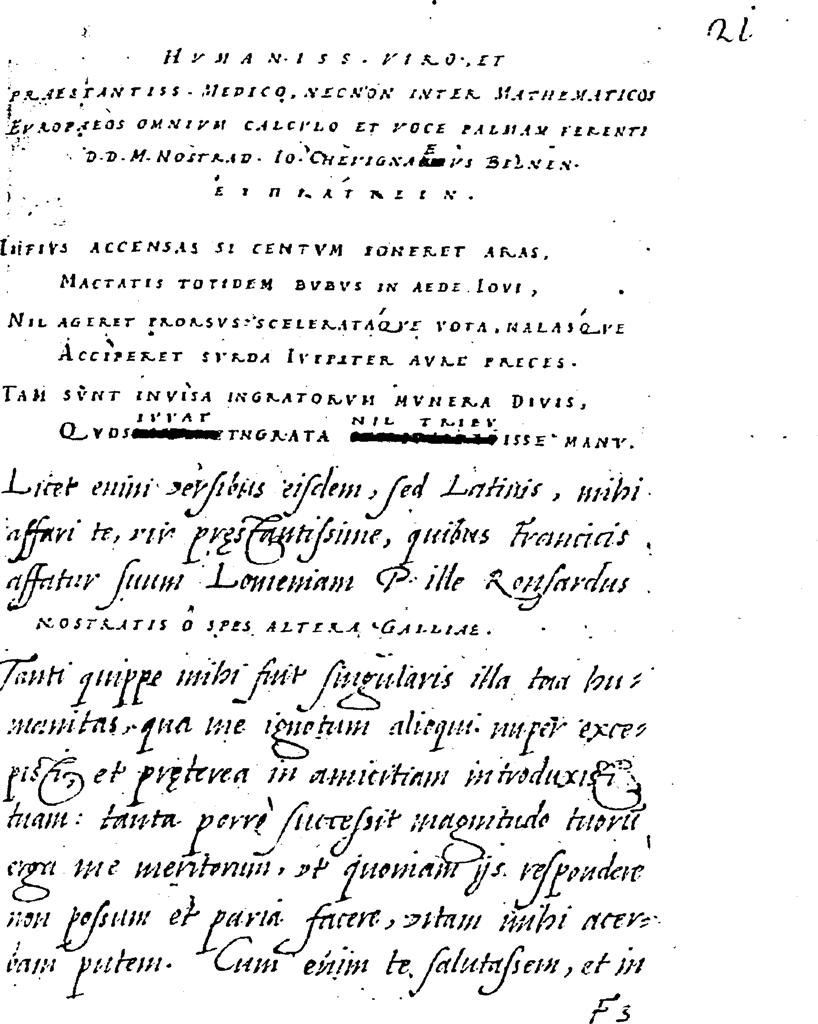 21
HVMANISS. VIRO, ET
PRAESTANTISS. MEDICO, NECNON INTER MATHEMATICOS
EVROPAEOS OMNIVM CALCVLO ET VOCE PALMAM FERENTI
D.D.M. NOSTRAD. IO. CHEVIGNAEVS BELNEN.
IMPIVS ACCENSAS SI CENTVM PONERET ARAS,
MACTATIS TOTIDEM BVBVS IN AEDE IOVI,
NIL AGERET PRORSVS: SCELERATÁQVE VOTA, MALASQVE
ACCIPERET SVRDA IVPPITER AVRE PRECES.
TAM SVNT INVISA INGRATORVM MVNERA DIVIS,
IVVAT NIL TRIBV
QVOS INGRATA ISSE MANV.
Licet enim versibus eisdem, sed Latinis, mihi
affari te, vir pręstantissime, quibus Francicis
affatur suum Lomeniam P. ille Ronsardus
NOSTRATIS Ô SPES ALTERA GALLIAE.
Tanti quippe mihi fuit singularis illa tua hu-
manitas, qua me ignotum alioqui nuper exce-
pisti, et pręterea in amicitiam introduxisti
tuam: tanta porrò successit magnitudo tuorū
erga me meritorum, vt quoniam ijs respondere
non possum et paria facere, vitam mihi acer-
bam putem. Cum enim te salutassem, et in
F 3